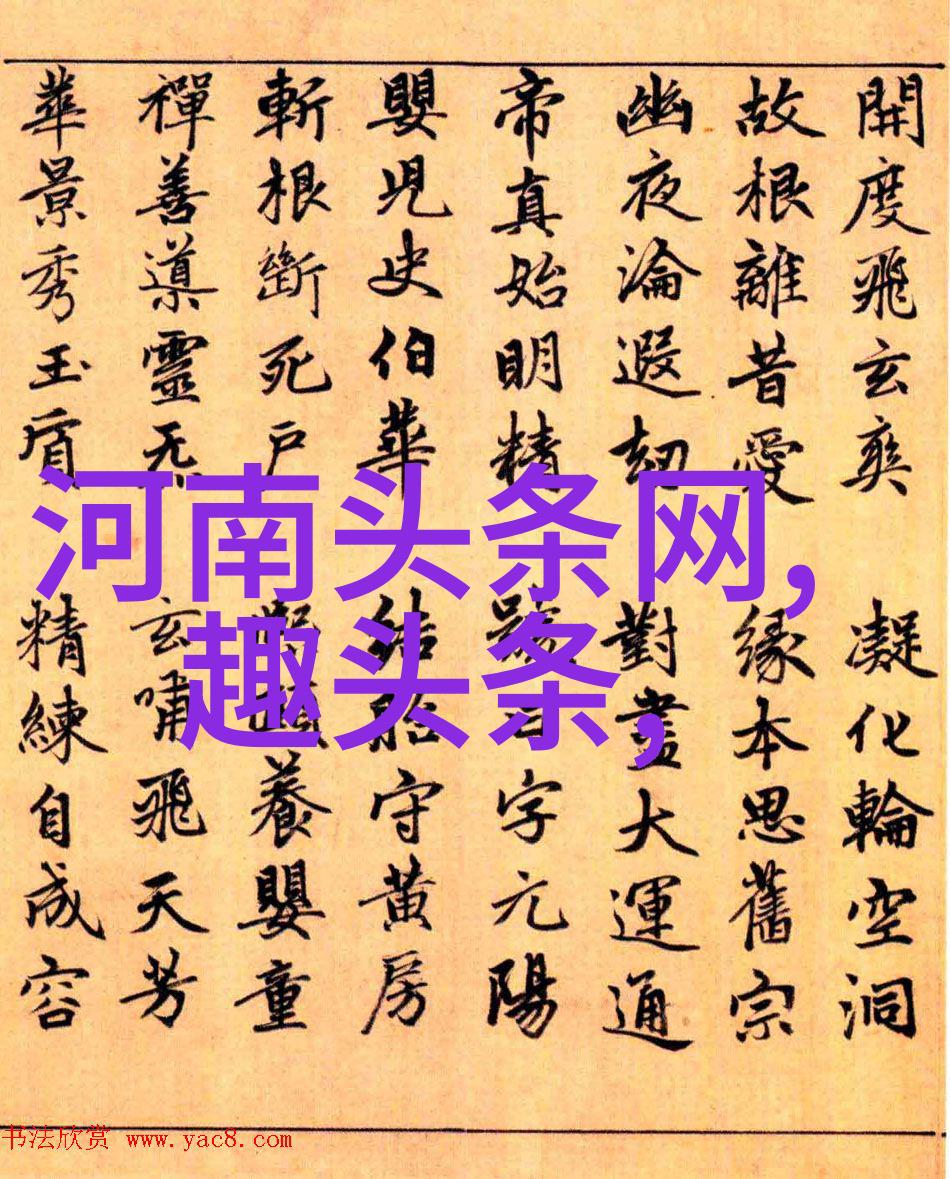 開度飛玄爽 凝化輪空洞
故根離昔愛 緣本思舊宗
幽夜淪遐劫 對盡大運通
帝真始明精 號曰字元陽
嬰兒史伯華 結胎守黃房
斬根斷死戶 養嬰童
禪善靈 玄嘯飛天芳
華景秀玉質 精練自成容
河南头条网,
趣头条,
书法欣赏 www.yac8.com